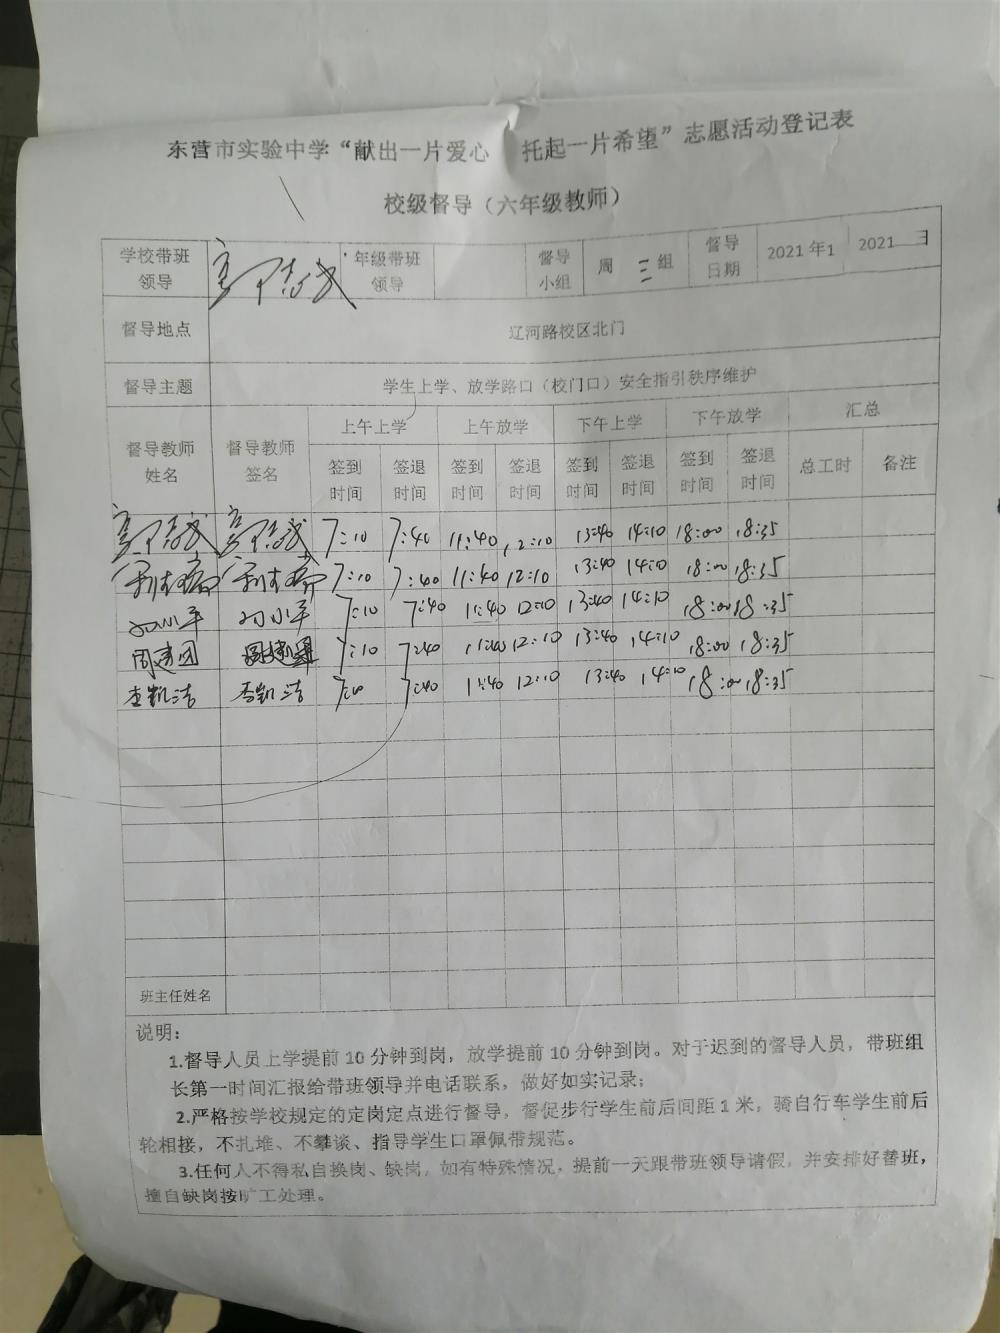 东营市实验中学“献出一片爱心 托起一片希望”志愿活动登记表
校级督导（六年级教师）
学校带班领导 年级带班领导 督导小组 周三组 督导日期 2021年1 2021 日
督导地点 辽河路校区北门
督导主题 学生上学、放学路口（校门口）安全指引秩序维护
督导教师姓名 督导教师签名 上午上学 上午放学 下午上学 下午放学 汇总
签到时间 签退时间 签到时间 签退时间 签到时间 签退时间 签到时间 签退时间 总工时 备注
7:10 7:40 11:40 12:10 13:40 14:10 18:00 18:35
7:10 7:40 11:40 12:10 13:40 14:10 18:00 18:35
刘小平 刘小平 7:10 7:40 11:40 12:10 13:40 14:10 18:00 18:35
周建国 周建国 7:10 7:40 11:40 12:10 13:40 14:10 18:00 18:35
李凯洁 李凯洁 7:10 7:40 11:40 12:10 13:40 14:10 18:00 18:35
班主任姓名
说明：
1.督导人员上学提前10分钟到岗，放学提前10分钟到岗。对于迟到的督导人员，带班组
长第一时间汇报给带班领导并电话联系，做好如实记录；
2.严格按学校规定的定岗定点进行督导，督促步行学生前后间距1米，骑自行车学生前后
轮相接，不扎堆、不攀谈、指导学生口罩佩带规范。
3.任何人不得私自换岗、缺岗，如有特殊情况，提前一天跟带班领导请假，并安排好替班，
擅自缺岗按旷工处理。